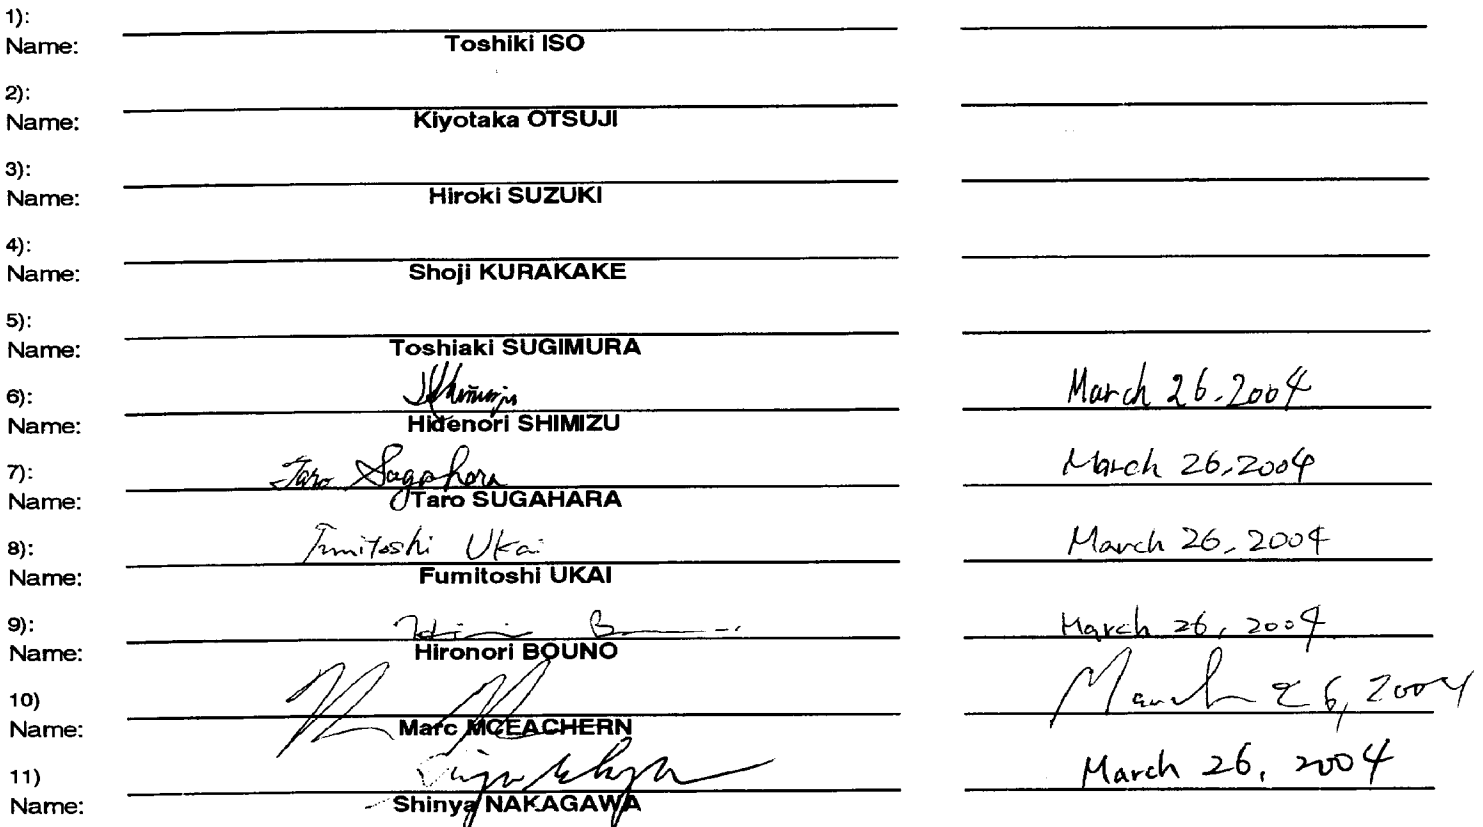 1):
Name: Toshiki ISO
2):
Name: Kiyotaka OTSUJI
3):
Name: Hiroki SUZUKI
4):
Name: Shoji KURAKAKE
5):
Name: Toshiaki SUGIMURA
6): March 26, 2004
Name: Hidenori SHIMIZU
7): Taro Sugahara March 26, 2004
Name: Taro SUGAHARA
8): Fumitoshi Ukai March 26, 2004
Name: Fumitoshi UKAI
9): March 26, 2004
Name: Hironori BOUNO
10) March 26, 2004
Name: Marc MCEACHERN
11) March 26, 2004
Name: Shinya NAKAGAWA